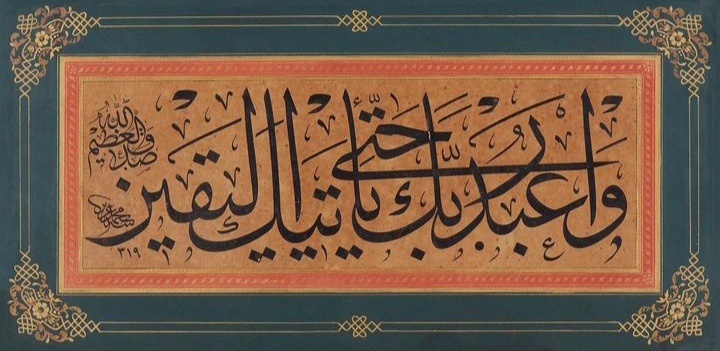 وَاعْبُدْ رَبَّكَ حَتَّى يَأْتِيَكَ الْيَقِينُ
صدق الله العظيم
٣١٩